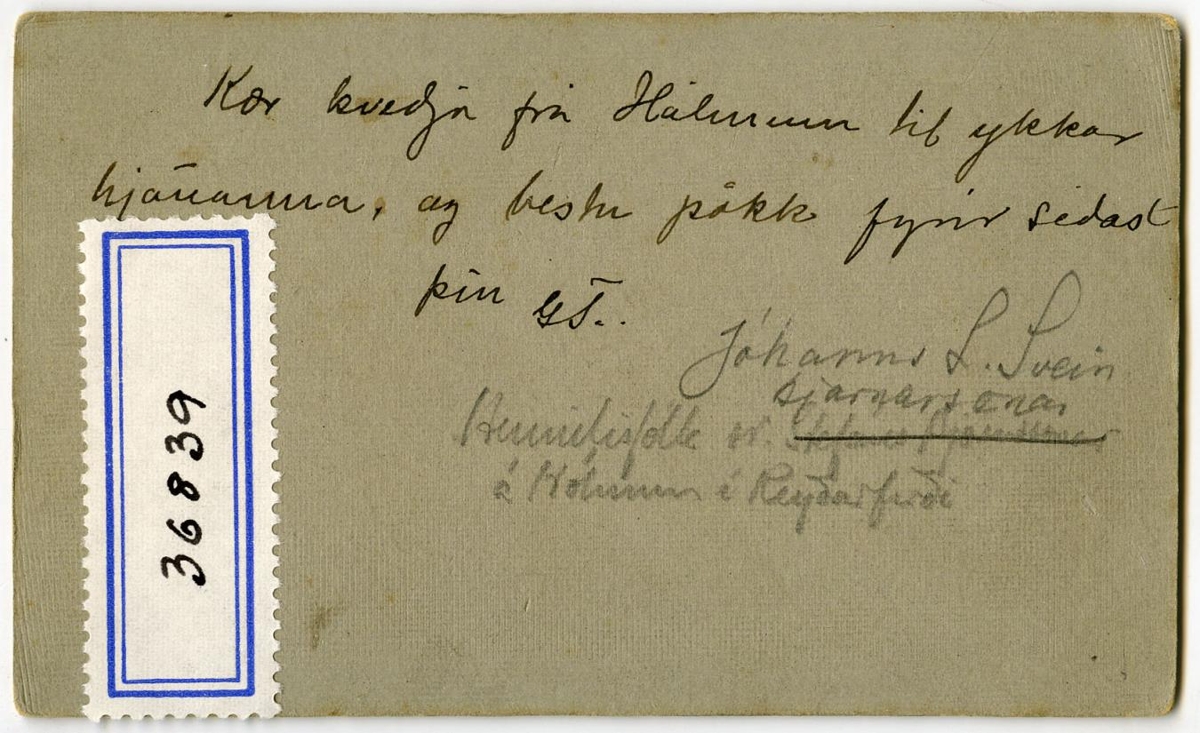 Kær kvedja frá Hólmum til ykkar
hjónanna, og bestu þökk fyrir sidast
þin GT..
Jóhanns L. Svein
bjarnarsonar
Heimilisfólk sr.
á Hólmum í Reyðarfirði
36839